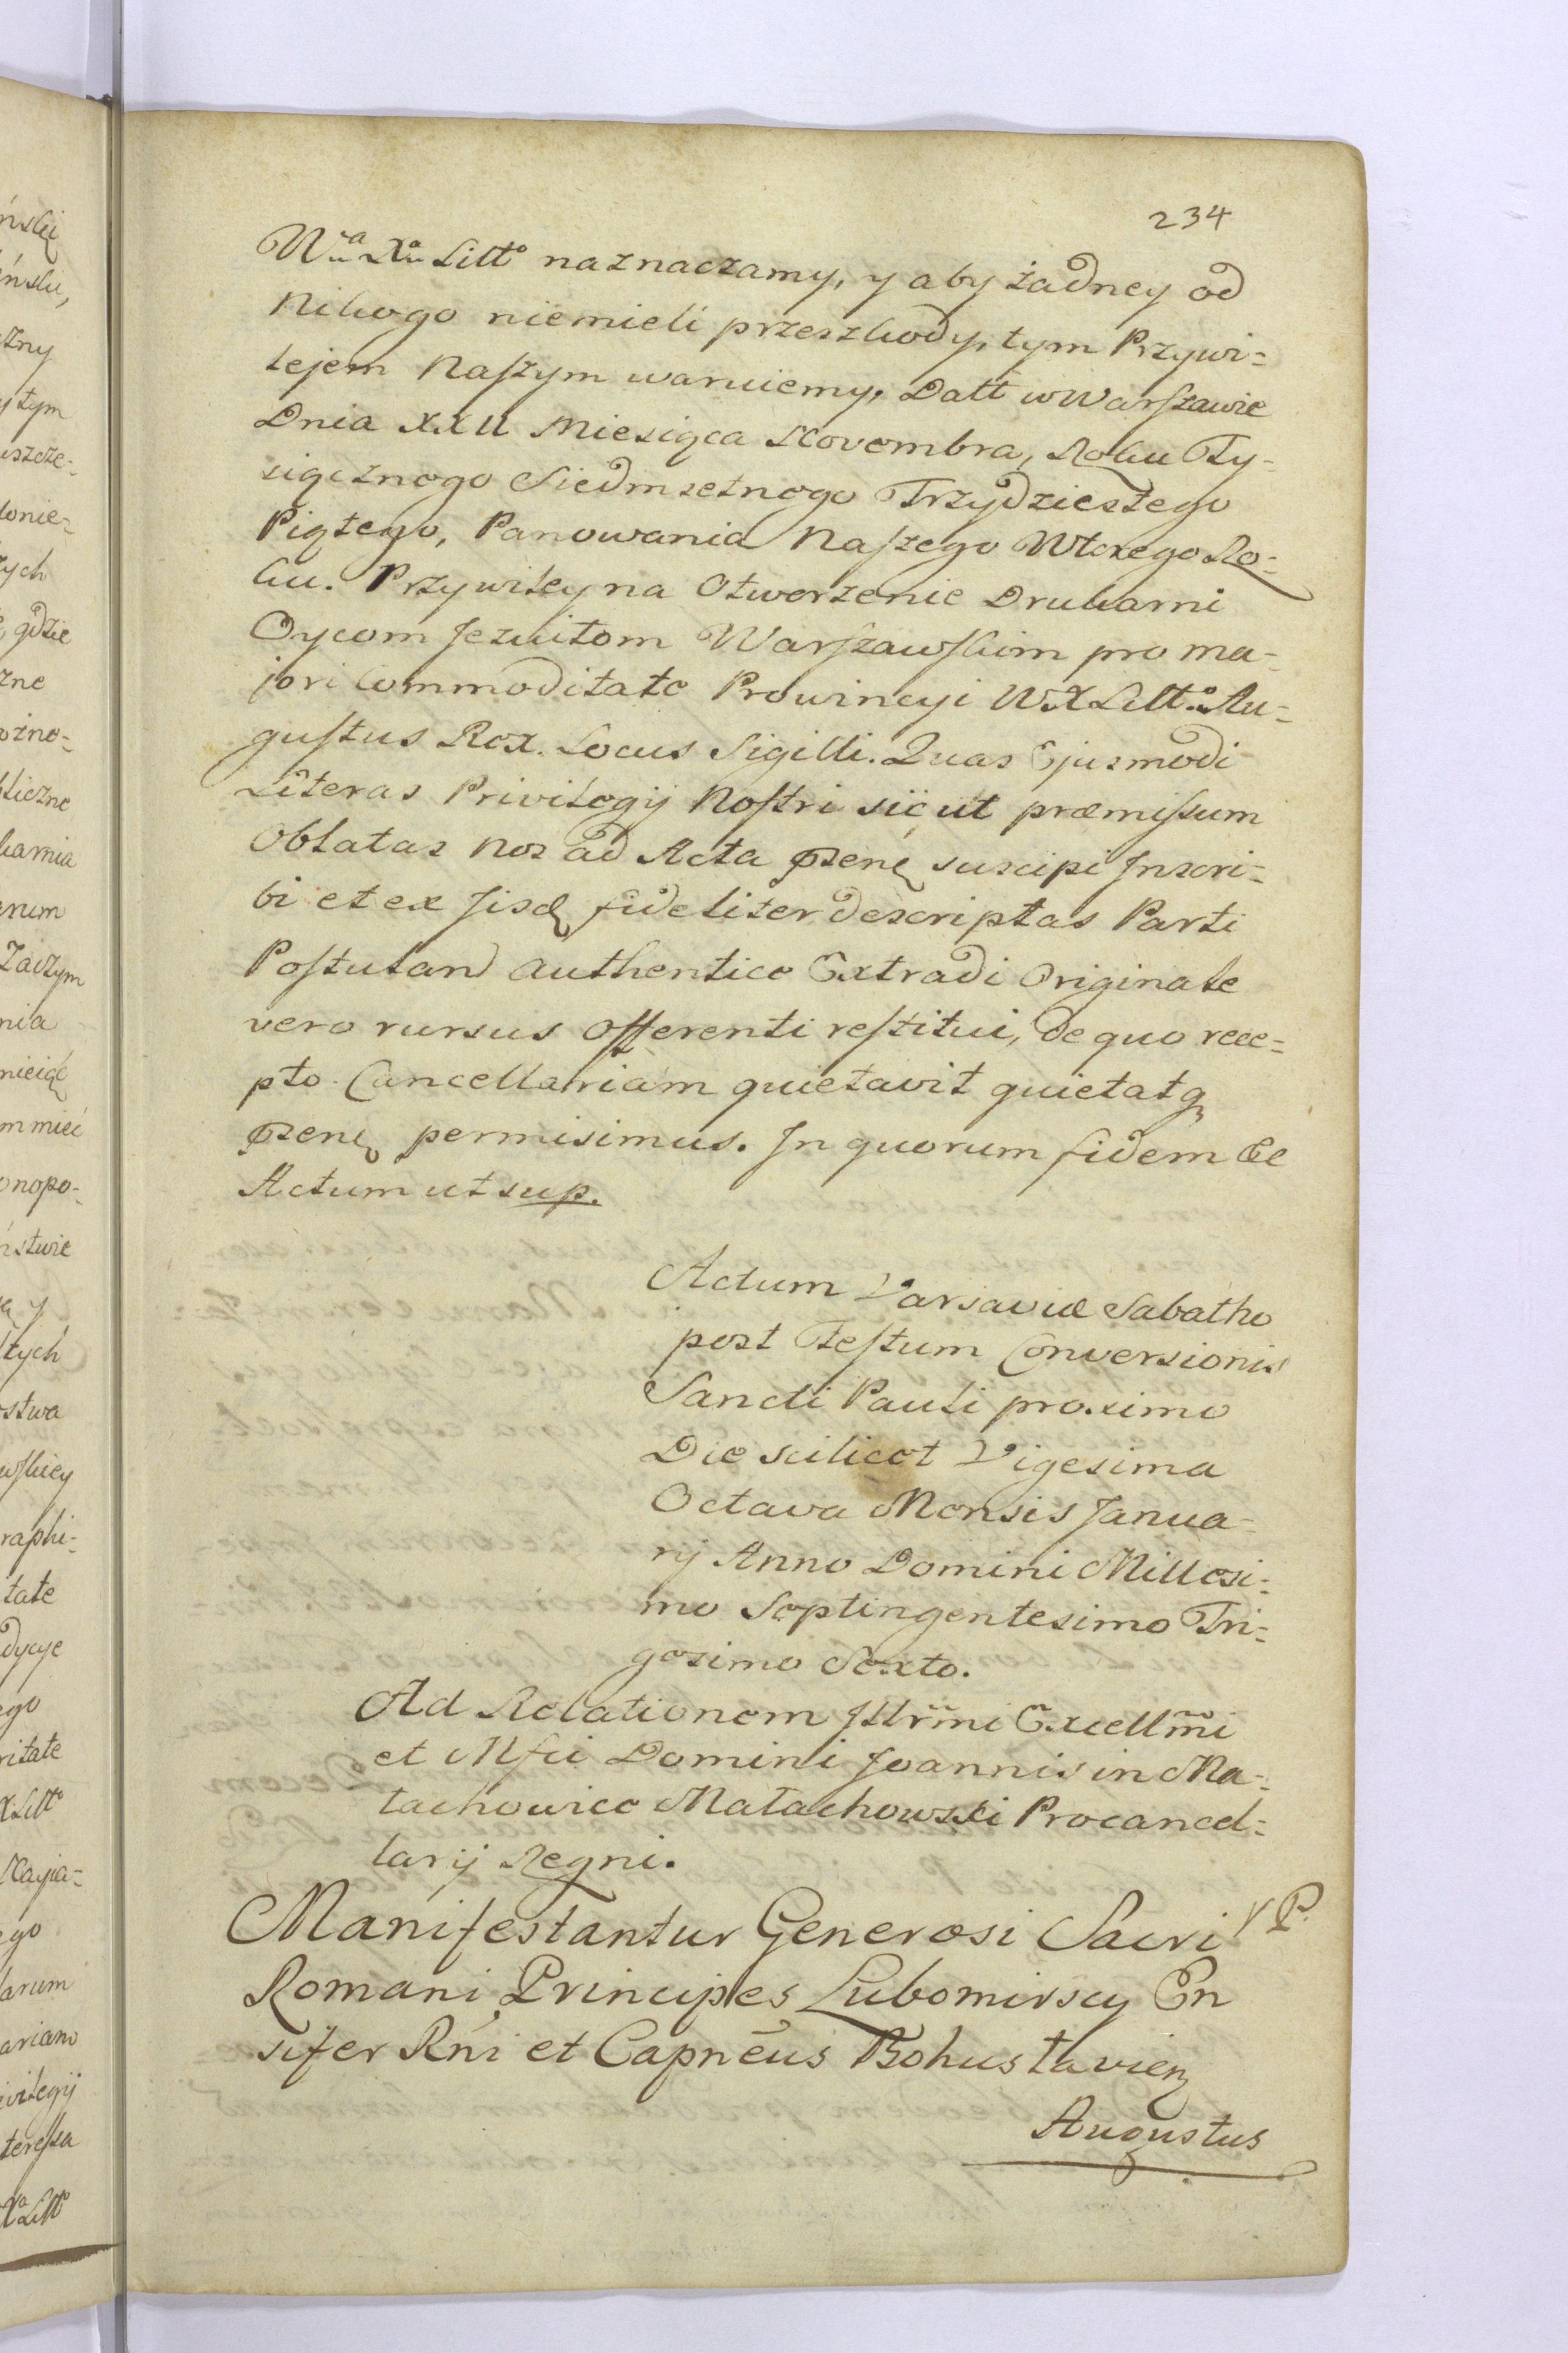 234
Wa Xa Litto naznaczamy, y aby żadney od
Nikogo niemieli przeszkody, tym Przywi=
lejem Naszym waruiemy, Datt w Warszawie
Dnia XXII Miesiąca Novembra, Roku Ty=
siącznego Siedmsetnego Trzydziestego
Piątego, Panowania Naszego Wtorego Ro=
ku. Przywiley na Otworzenie Drukarni
Oycom Jezuitom Warszawskim pro ma=
jori Commoditate Prowincyi WX Litt: Au=
gustus Rex. Locus Sigilli. Quas Ejusmodi
Literas Privilegij Nostri sic, ut præmissum
Oblatas Nos ad Acta pseñę suscipi Inscri=
bi et ex Iisdę fideliter descriptas Parti
Postuland authentice Extradi Originale
vero rursus offerenti restitui, de quo rece=
pto Cancellariam quietavit quietatq
psenę permisimus. In quorum fidem &c
Actum ut sup.
Actum Varsaviæ Sabatho
post Festum Conversionis
Sancti Pauli proximo
Die scilicet Vigesima
Octava Mensis Janua=
rij Anno Domini Millesi=
mo Septingentesimo Tri=
gesimo Sexto.
Ad Relationem Illrm̃ni Excellm̃i
et Mfci Domini Joannis in Ma=
łachowice Małachowski Procancel=
larij Regni.
Manifestantur Generosi Sacri
Romani Principes Lubomirscy En
sifer Rni et Capnēus Bohuslavien
Augustus
ński
ńskie,
zny
y tym
uszcze=
zych
gdzie
zne
ożno=
liczne
karnia
Zaczym
nia
m mieć
onopo=
ństwie
tych
stwa
wskiey
raphi=
tate
dycye
ego
ritate
X Litto
ego
larum
ariam
ivilegij
teressa
Xa Litto